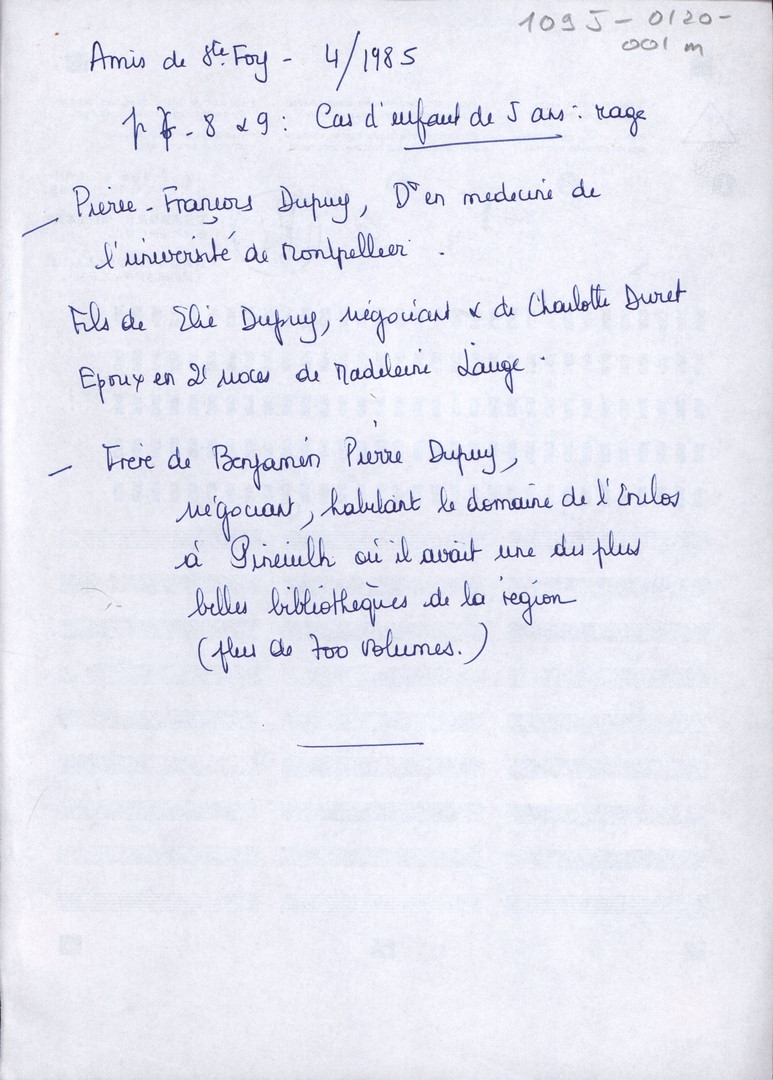 109 J - 0120-
001 m
Amis de Ste Foy - 4/1985
p 7 - 8 & 9 : Cas d'enfant de 5 ans : rage
Pierre-François Dupuy, Dr en medecine de
l'université de Montpellier.
Fils de Elie Dupuy, négociant & de Charlotte Duret
Epoux en 2e noces de Madeleine Lauge.
- Frère de Benjamin Pierre Dupuy,
négociant, habitant le domaine de l'Enclos
à Pineuilh où il avait une des plus
belles bibliothèques de la région
(plus de 700 volumes.)